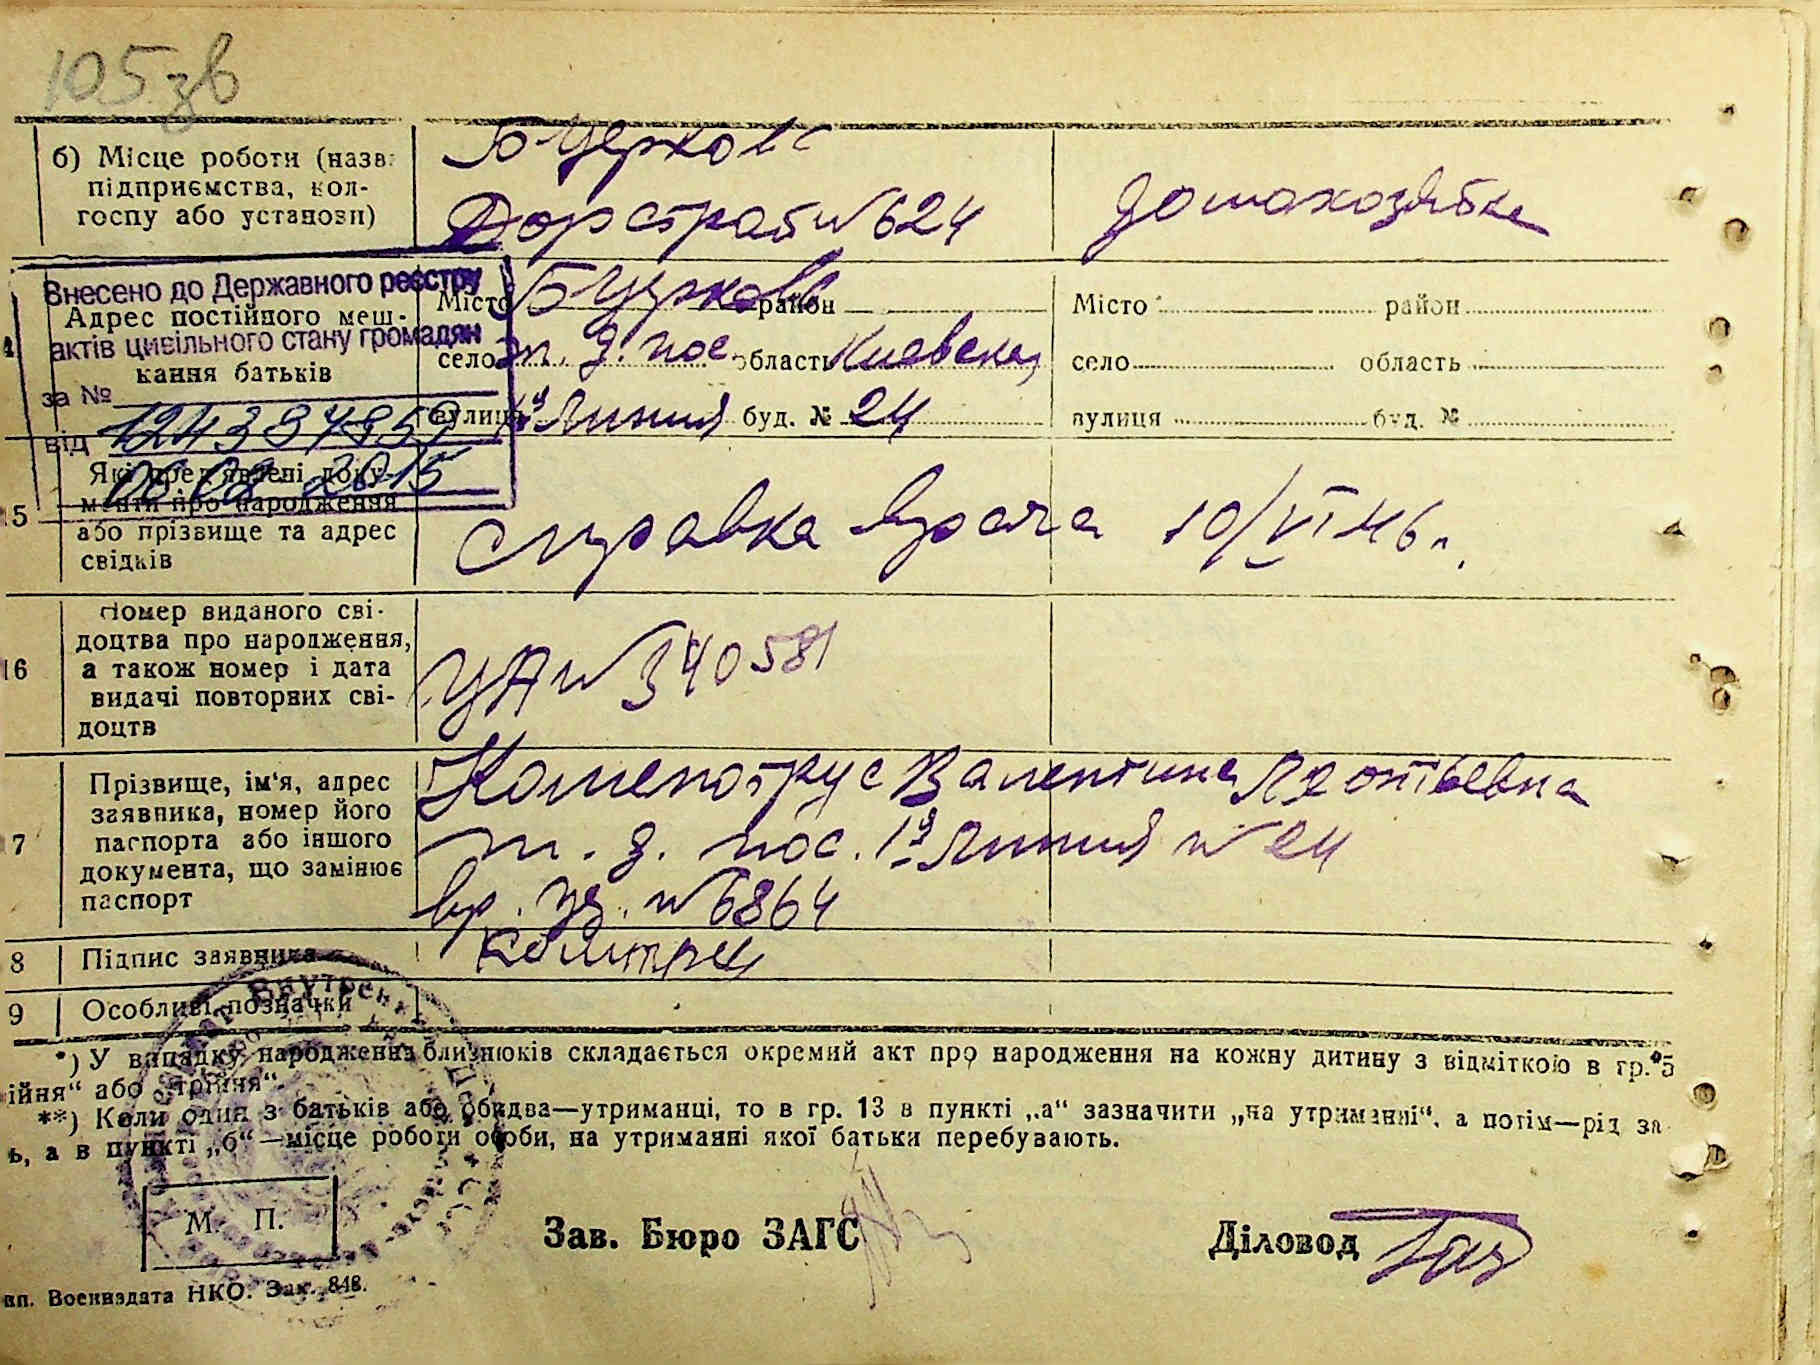 105 зв
б) Місце роботи (назва підприємства, кол-
госпу або установи)
Б Церковь
Дорстрой № 624
домахозяйка
Внесено до Державного реєстру
актів цивільного стану громадян
за № 1243878
від 06 02 2015
Адрес постійного меш-
кання батьків
Місто Б Церковь район
село ж. д. пос. область Киевская
вулиця 1я Линия буд. № 24
Місто район
село область
вулиця буд. №
15
Які пред'явлені доку-
менти про народження
або прізвище та адрес
свідків
справка врача 10/VI 46 г.
16
Номер виданого сві-
доцтва про народження,
а також номер і дата
видачі повторних сві-
доцтв
УА № 340581
7
Прізвище, ім‘я, адрес
заявника, номер його
паспорта або іншого
документа, що замінює
паспорт
Валентина Леонтьевна
ж. д. пос. 1я Линия № 24
вр. уд. № 6864
8 Підпис заявника
9 Особливі позначки
*) У випадку народження близнюків складається окремий акт про народження на кожну дитину з відміткою в гр. 5
ійня“ або „трійня“.
**) Коли один з батьків або обидва—утриманці, то в гр. 13 в пункті „а“ зазначити „на утриманні“, а потім—рід за
ь, а в пункті „б“—місце роботи особи, на утриманні якої батьки перебувають.
М. П.
Зав. Бюро ЗАГС
Діловод
вп. Воениздата НКО. Зак. 848.